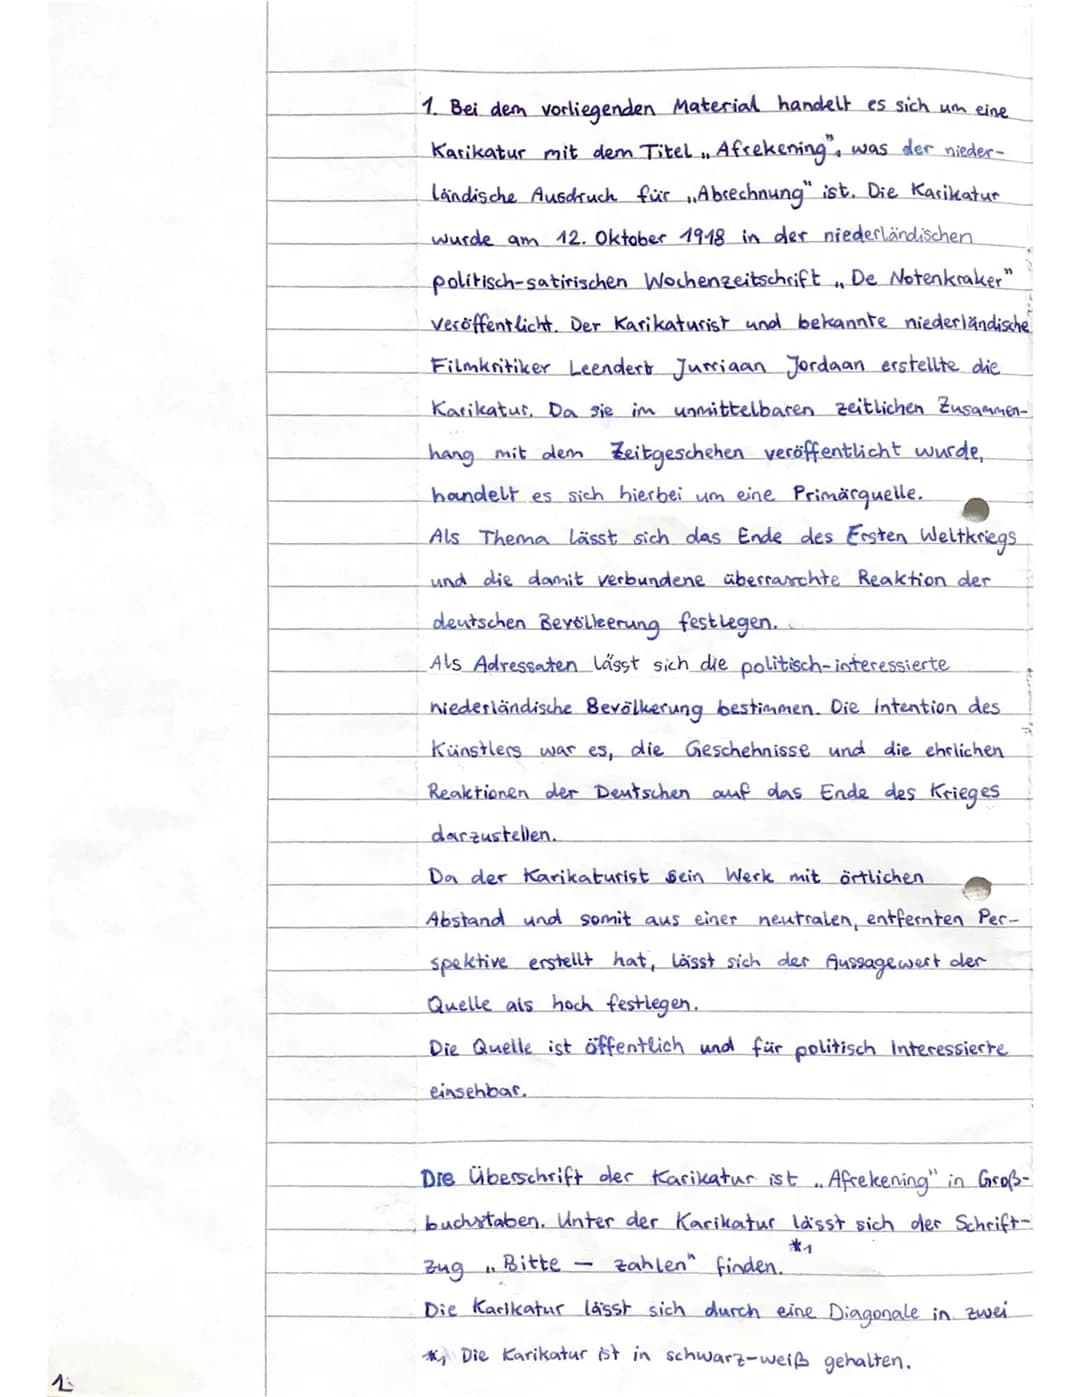 1. Bei dem vorliegenden Material handelt es sich um eine
Karikatur mit dem Titel „Afrekening", was der nieder-
ländische Ausdruck für „Abrechnung" ist. Die Karikatur
wurde am 12. Oktober 1918 in der niederländischen
politisch-satirischen Wochenzeitschrift „De Notenkraker"
veröffentlicht. Der Karikaturist und bekannte niederländische
Filmkritiker Leendert Jurriaan Jordaan erstellte die
Karikatur. Da sie im unmittelbaren zeitlichen Zusammen-
hang mit dem Zeitgeschehen veröffentlicht wurde,
handelt es sich hierbei um eine Primärquelle.
Als Thema lässt sich das Ende des Ersten Weltkriegs
und die damit verbundene überraschte Reaktion der
deutschen Bevölkerung festlegen.
Als Adressaten lässt sich die politisch-interessierte
niederländische Bevölkerung bestimmen. Die Intention des
Künstlers war es, die Geschehnisse und die ehrlichen
Reaktionen der Deutschen auf das Ende des Krieges
darzustellen.
Da der Karikaturist sein Werk mit örtlichen
Abstand und somit aus einer neutralen, entfernten Per-
spektive erstellt hat, lässt sich der Aussagewert der
Quelle als hoch festlegen.
Die Quelle ist öffentlich und für politisch Interessierte
einsehbar.
Die Überschrift der Karikatur ist „Afrekening" in Groß-
buchstaben. Unter der Karikatur lässt sich der Schrift-
zug „Bitte – zahlen" finden. *1
Die Karikatur lässt sich durch eine Diagonale in zwei
*1 Die Karikatur ist in schwarz-weiß gehalten.
1